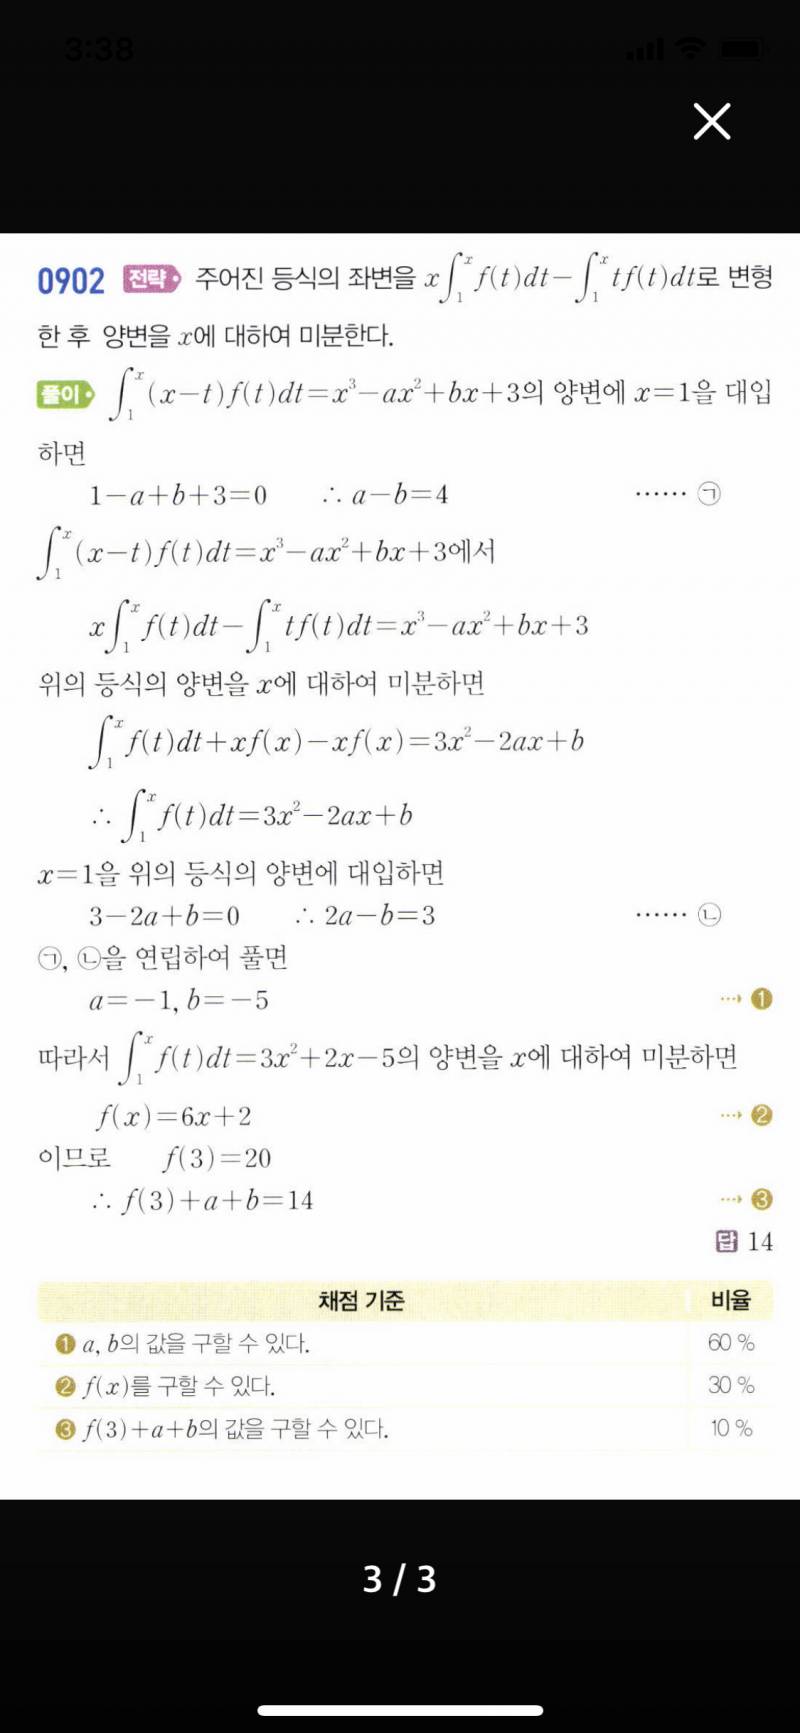 3:38
0902 전략 주어진 등식의 좌변을 x∫₁ˣ f(t)dt−∫₁ˣ tf(t)dt로 변형
한 후 양변을 x에 대하여 미분한다.
풀이 ∫₁ˣ (x−t)f(t)dt=x³−ax²+bx+3의 양변에 x=1을 대입
하면
1−a+b+3=0 ∴ a−b=4 …… ㉠
∫₁ˣ (x−t)f(t)dt=x³−ax²+bx+3에서
x∫₁ˣ f(t)dt−∫₁ˣ tf(t)dt=x³−ax²+bx+3
위의 등식의 양변을 x에 대하여 미분하면
∫₁ˣ f(t)dt+xf(x)−xf(x)=3x²−2ax+b
∴ ∫₁ˣ f(t)dt=3x²−2ax+b
x=1을 위의 등식의 양변에 대입하면
3−2a+b=0 ∴ 2a−b=3 …… ㉡
㉠, ㉡을 연립하여 풀면
a=−1, b=−5 ⋯→ ❶
따라서 ∫₁ˣ f(t)dt=3x²+2x−5의 양변을 x에 대하여 미분하면
f(x)=6x+2 ⋯→ ❷
이므로 f(3)=20
∴ f(3)+a+b=14 ⋯→ ❸
답 14
채점 기준 비율
❶ a, b의 값을 구할 수 있다. 60 %
❷ f(x)를 구할 수 있다. 30 %
❸ f(3)+a+b의 값을 구할 수 있다. 10 %
3 / 3